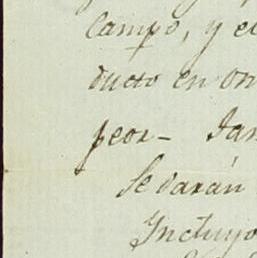 Campo, y el
ducto en
peor_
Se darán
Incluyo